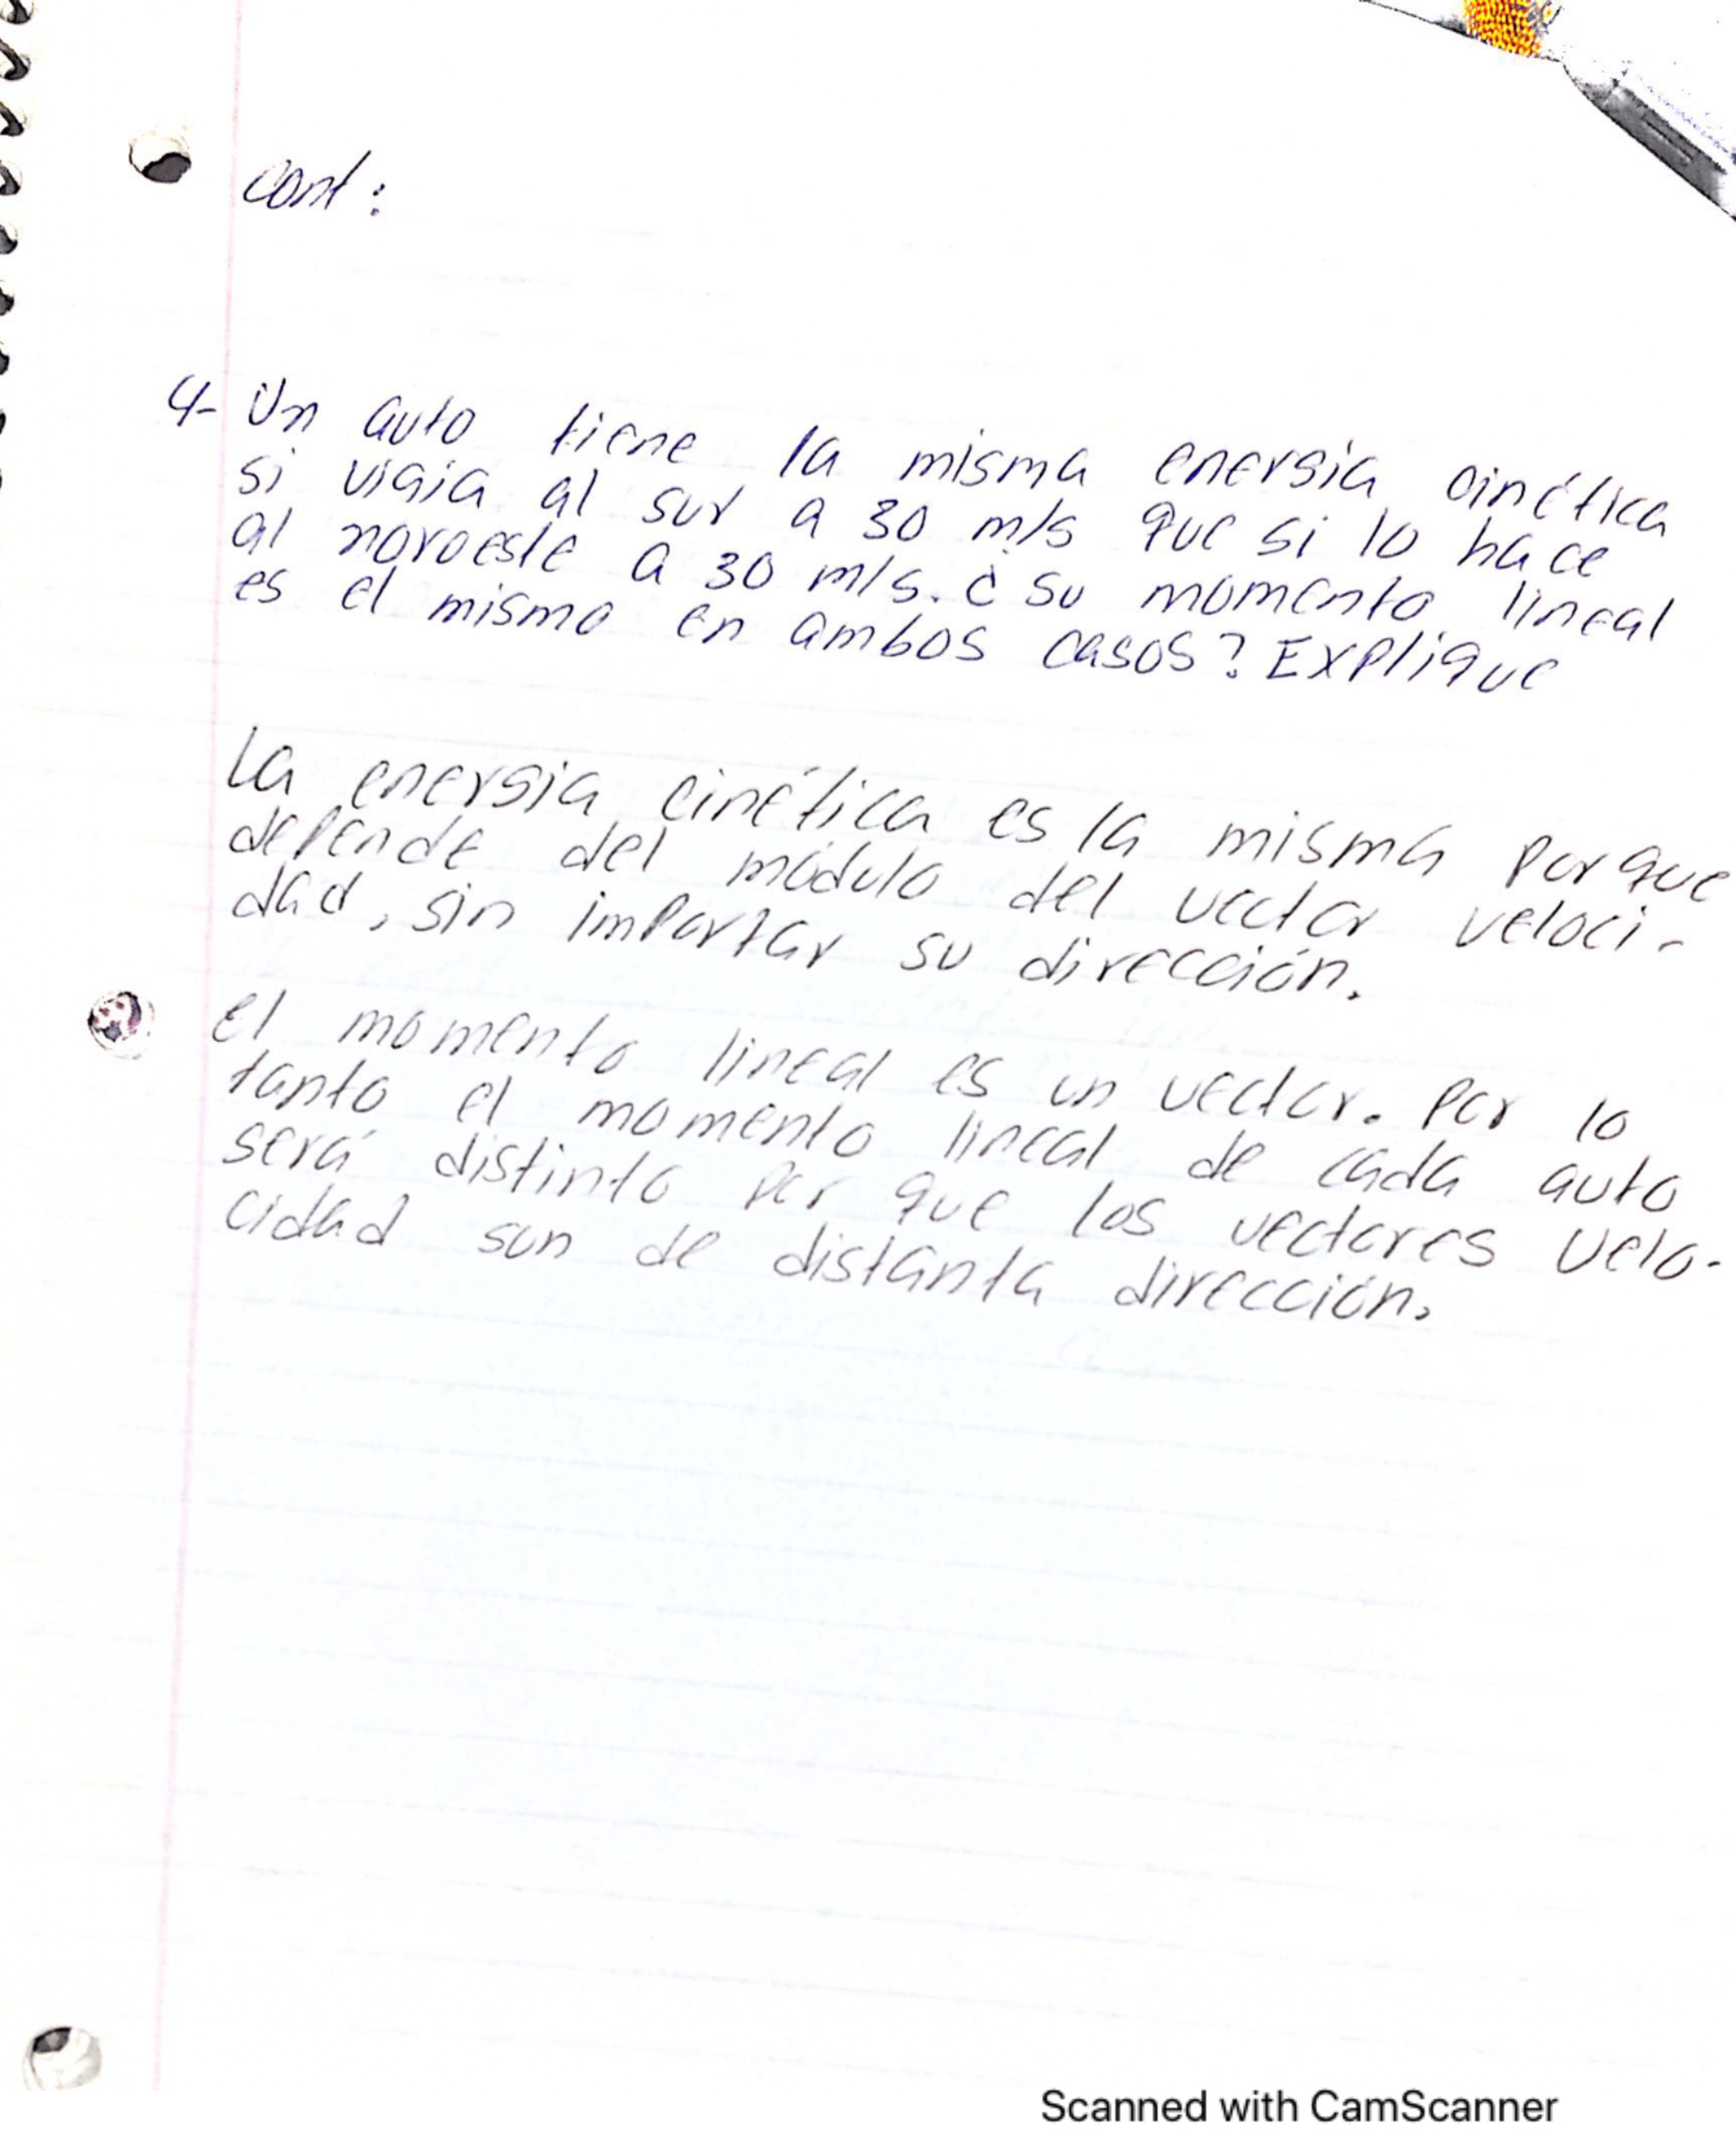 cont:
4- Un auto tiene la misma energía cinética
si viaja al sur a 30 m/s que si lo hace
al noroeste a 30 m/s. ¿ su momento lineal
es el mismo en ambos casos? Explique
La energía cinética es la misma porque
depende del módulo del vector veloci-
dad, sin importar su dirección.
el momento lineal es un vector. Por lo
tanto el momento lineal de cada auto
será distinto por que los vectores velo-
cidad son de distanta dirección.
Scanned with CamScanner